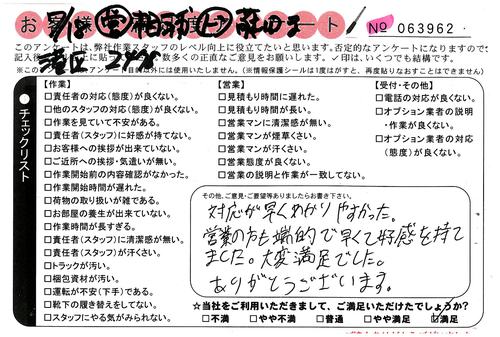 お客様
度
ート
No 063962
このアンケートは、弊社作業スタッフのレベル向上に役立てたいと思います。否定的なアンケートになりますので
数多くの正直なご意見をお願いします。✓印は、いくつでも結構です。
目的以外には使用いたしません。(※情報保護シールは1度はがすと、再度貼りなおすことはできません
● チェックリスト
【作業】
□責任者の対応(態度)が良くない。
□他のスタッフの対応(態度)が良くない。
□作業を見ていて不安がある。
□責任者(スタッフ)に好感が持てない。
□お客様への挨拶が出来ていない。
□ご近所への挨拶・気遣いが無い。
□作業開始前の内容確認がなかった。
□作業開始時間が遅れた。
□荷物の取り扱いが雑である。
□お部屋の養生が出来ていない。
□作業時間が長すぎる。
□責任者(スタッフ)に清潔感が無い。
□責任者(スタッフ)が汗くさい。
□トラックが汚い。
□梱包資材が汚い。
□運転が不安(下手)である。
□靴下の履き替えをしてない。
□スタッフにやる気がみられない。
【営業】
□見積もり時間に遅れた。
□見積もり時間が長い。
□営業マンに清潔感が無い。
□営業マンが煙草くさい。
□営業マンが汗くさい。
□営業態度が良くない。
□営業の説明と作業が一致してない。
【受付・その他】
□電話の対応が良くない。
□オプション業者の説明
・作業が良くない。
□オプション業者の対応
(態度)が良くない。
その他、ご意見・ご要望等ありましたらお書き下さい。
対応が早くわかりやすかった。
営業の方も端的で早くて好感を持て
ました。大変満足でした。
ありがとうございます。
☆当社をご利用いただきまして、ご満足いただけたでしょうか?
□不満 □やや不満 □普通 □やや満足 ☑満足